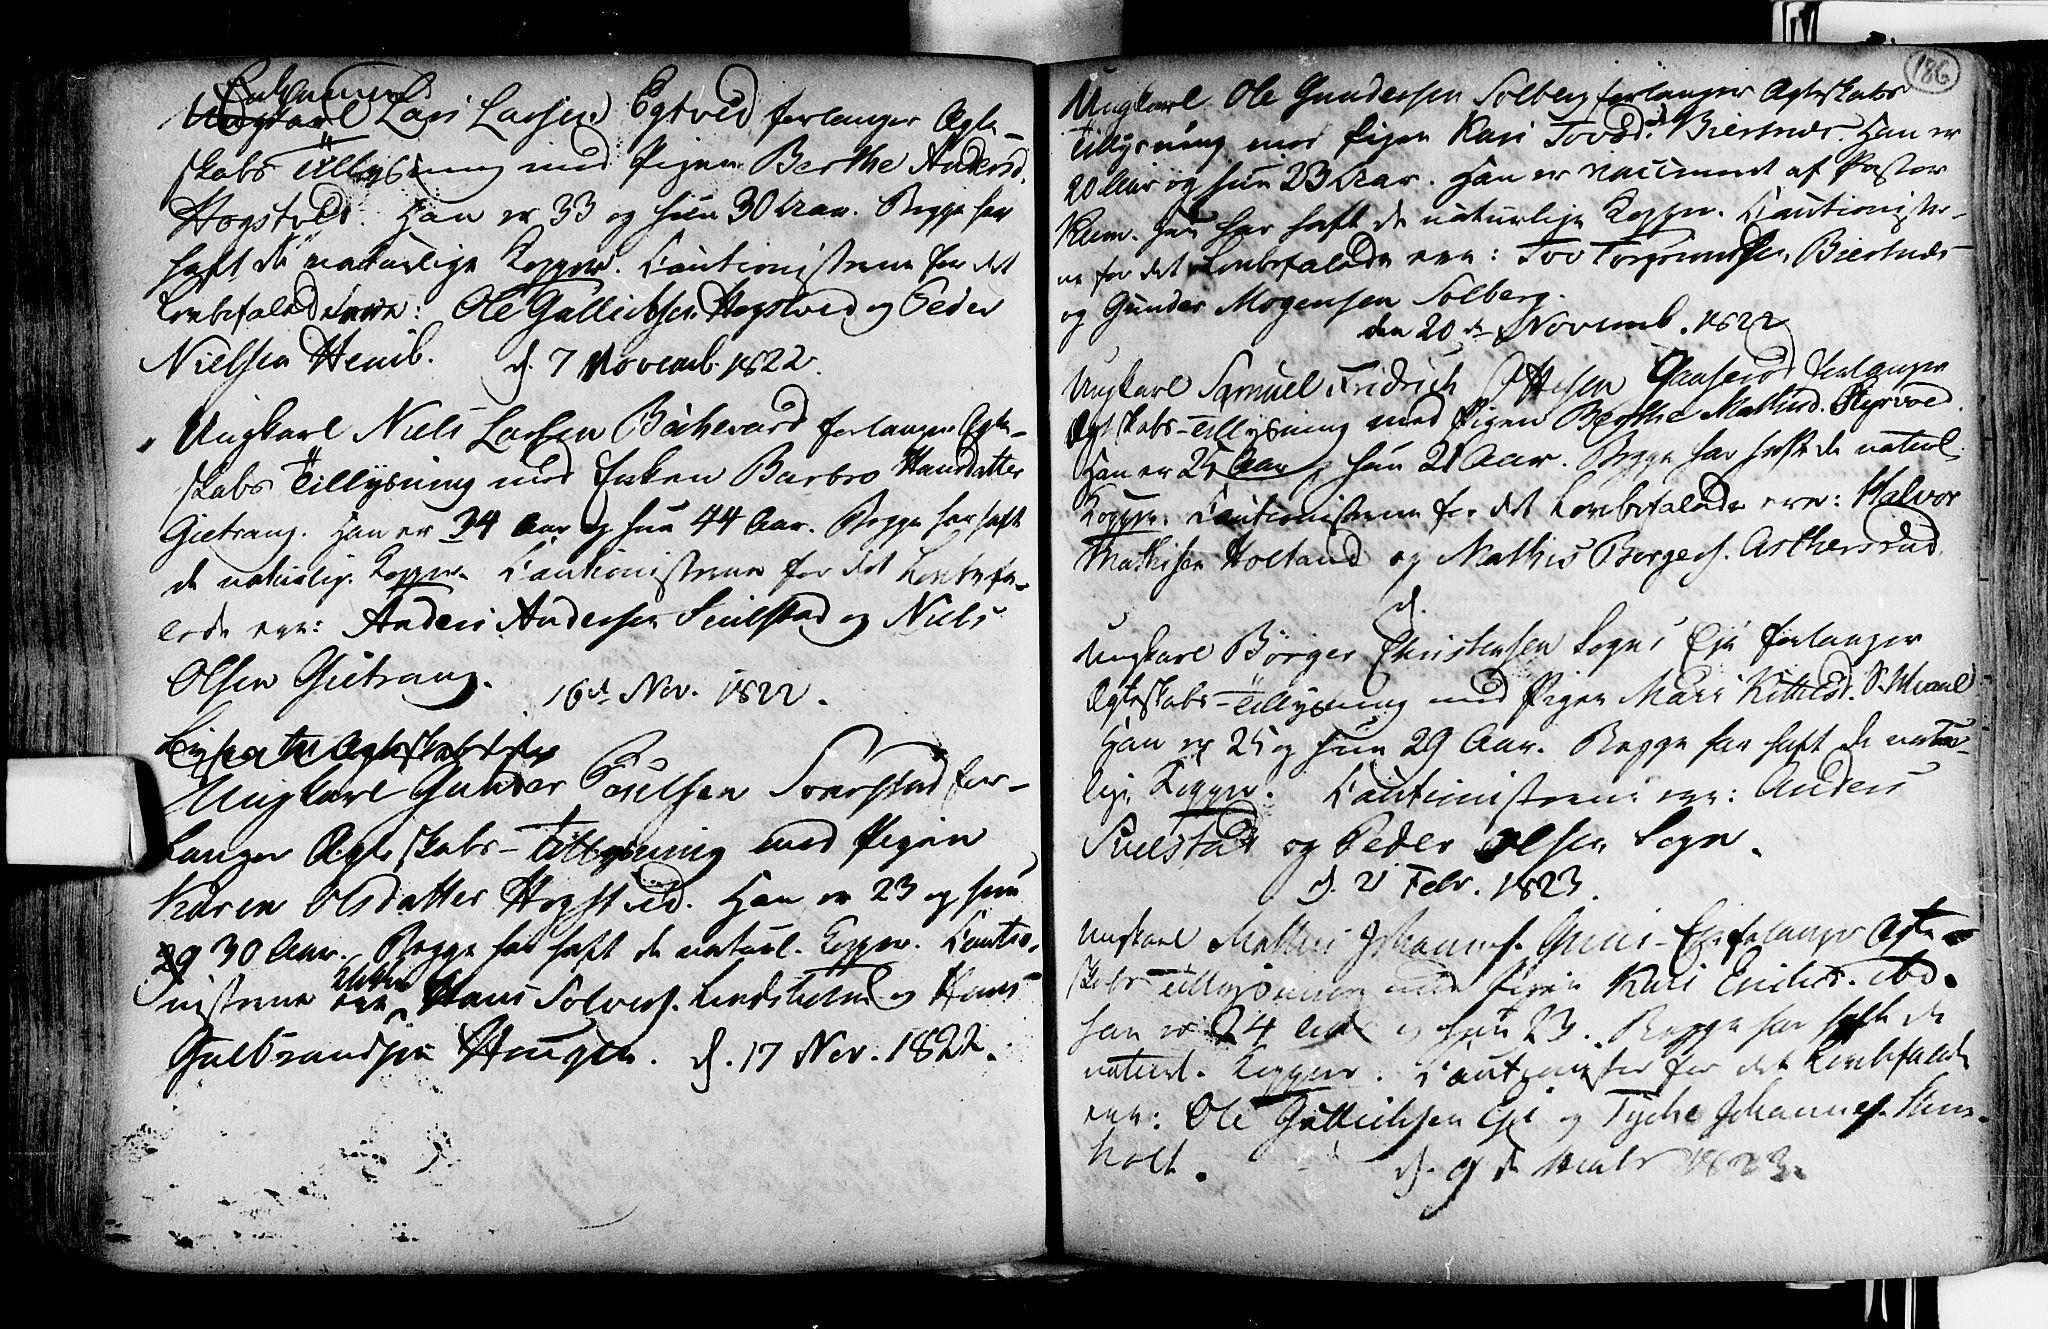 Enkemand
Ungkarl Lars Larsen Egtved forlanger Ægte-
skabs Tillysning med Pigen Berthe Andersd.
Hogstvedt. Han er 33 og hun 30 Aar. Begge har
haft de naturlige Kopper. Cautionisterne for det
Lovbefalede ere: Ole Gullichsen Hogstved og Peder
Nielsen Hemb. d. 7 Novemb. 1822.
Ungkarl Niels Larsen Bachevard forlanger Ægte-
skabs Tillysning med Enken Barbro Hansdatter
Gietrang. Han er 34 Aar og hun 44 Aar. Begge har haft
de naturlige Kopper. Cautionisterne for det Lovbefa-
lede ere: Anders Andersen Snilstad og Niels
Olsen Gietrang. 16de Nov. 1822.
Ungkarl Gunder Poulsen Soerstad for-
langer Ægteskabs-Tillysning med Pigen
Karen Olsdatter Hogstved. Han er 23 og hun
30 Aar. Begge har haft de naturl. Kopper. Cautio-
nisterne ere Hans Solves. Lindsholm og Hans
Gulbrandsen Haugen. d. 17 Nov. 1822.
186
Ungkarl Ole Gundersen Solberg forlanger Ægteskabs
Tillysning med Pigen Kari Tovsd. Biertnæs. Han er
20 Aar og hun 23 Aar. Han er vaccineret af Pastor
Klem. Hun har haft de naturlige Kopper. Cautionister-
ne for det Lovbefalede ere: Tov Torgrimsen Biertnæs
og Gunder Mogensen Solberg.
den 20de Novemb. 1822
Ungkarl Samuel Fridrich Ottesen forlanger
Ægteskabs-Tillysning med Pigen Berthe Mathisd. Styrvold.
Han er 25 Aar og hun 21 Aar. Begge har haft de naturl.
Kopper. Cautionisterne for det Lovbefalede ere: Halvor
Mathisen Holtand og Mathis Borgers. Asthersrud
d.
Ungkarl Börger Christensen Sogns Eje forlanger
Ægteskabs-Tillysning med Pigen Mari Kittelsd.
Han er 25 og hun 29 Aar. Begge har haft de natur-
lige Kopper. Cautionisterne ere: Anders
Snilstad og Peder Olsen Sogn.
d. 21 Febr. 1823.
Ungkarl Mathis Johannes. Eje forlanger Ægte-
skabs-Tillysning med Pigen Kari Endersd. ibd.
han er 24 Aar og hun 23. Begge har haft de
naturl. Kopper. Cautionister for det Lovbefalede
ere: Ole Gullichsen Eje og Tyche Johannes.
holt. d. 9de Marts 1823.